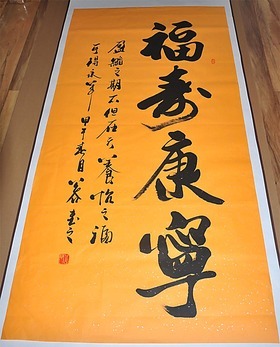 福寿康寧
盈縮之期不但在天養怡之福
可得永年甲午年月
書之